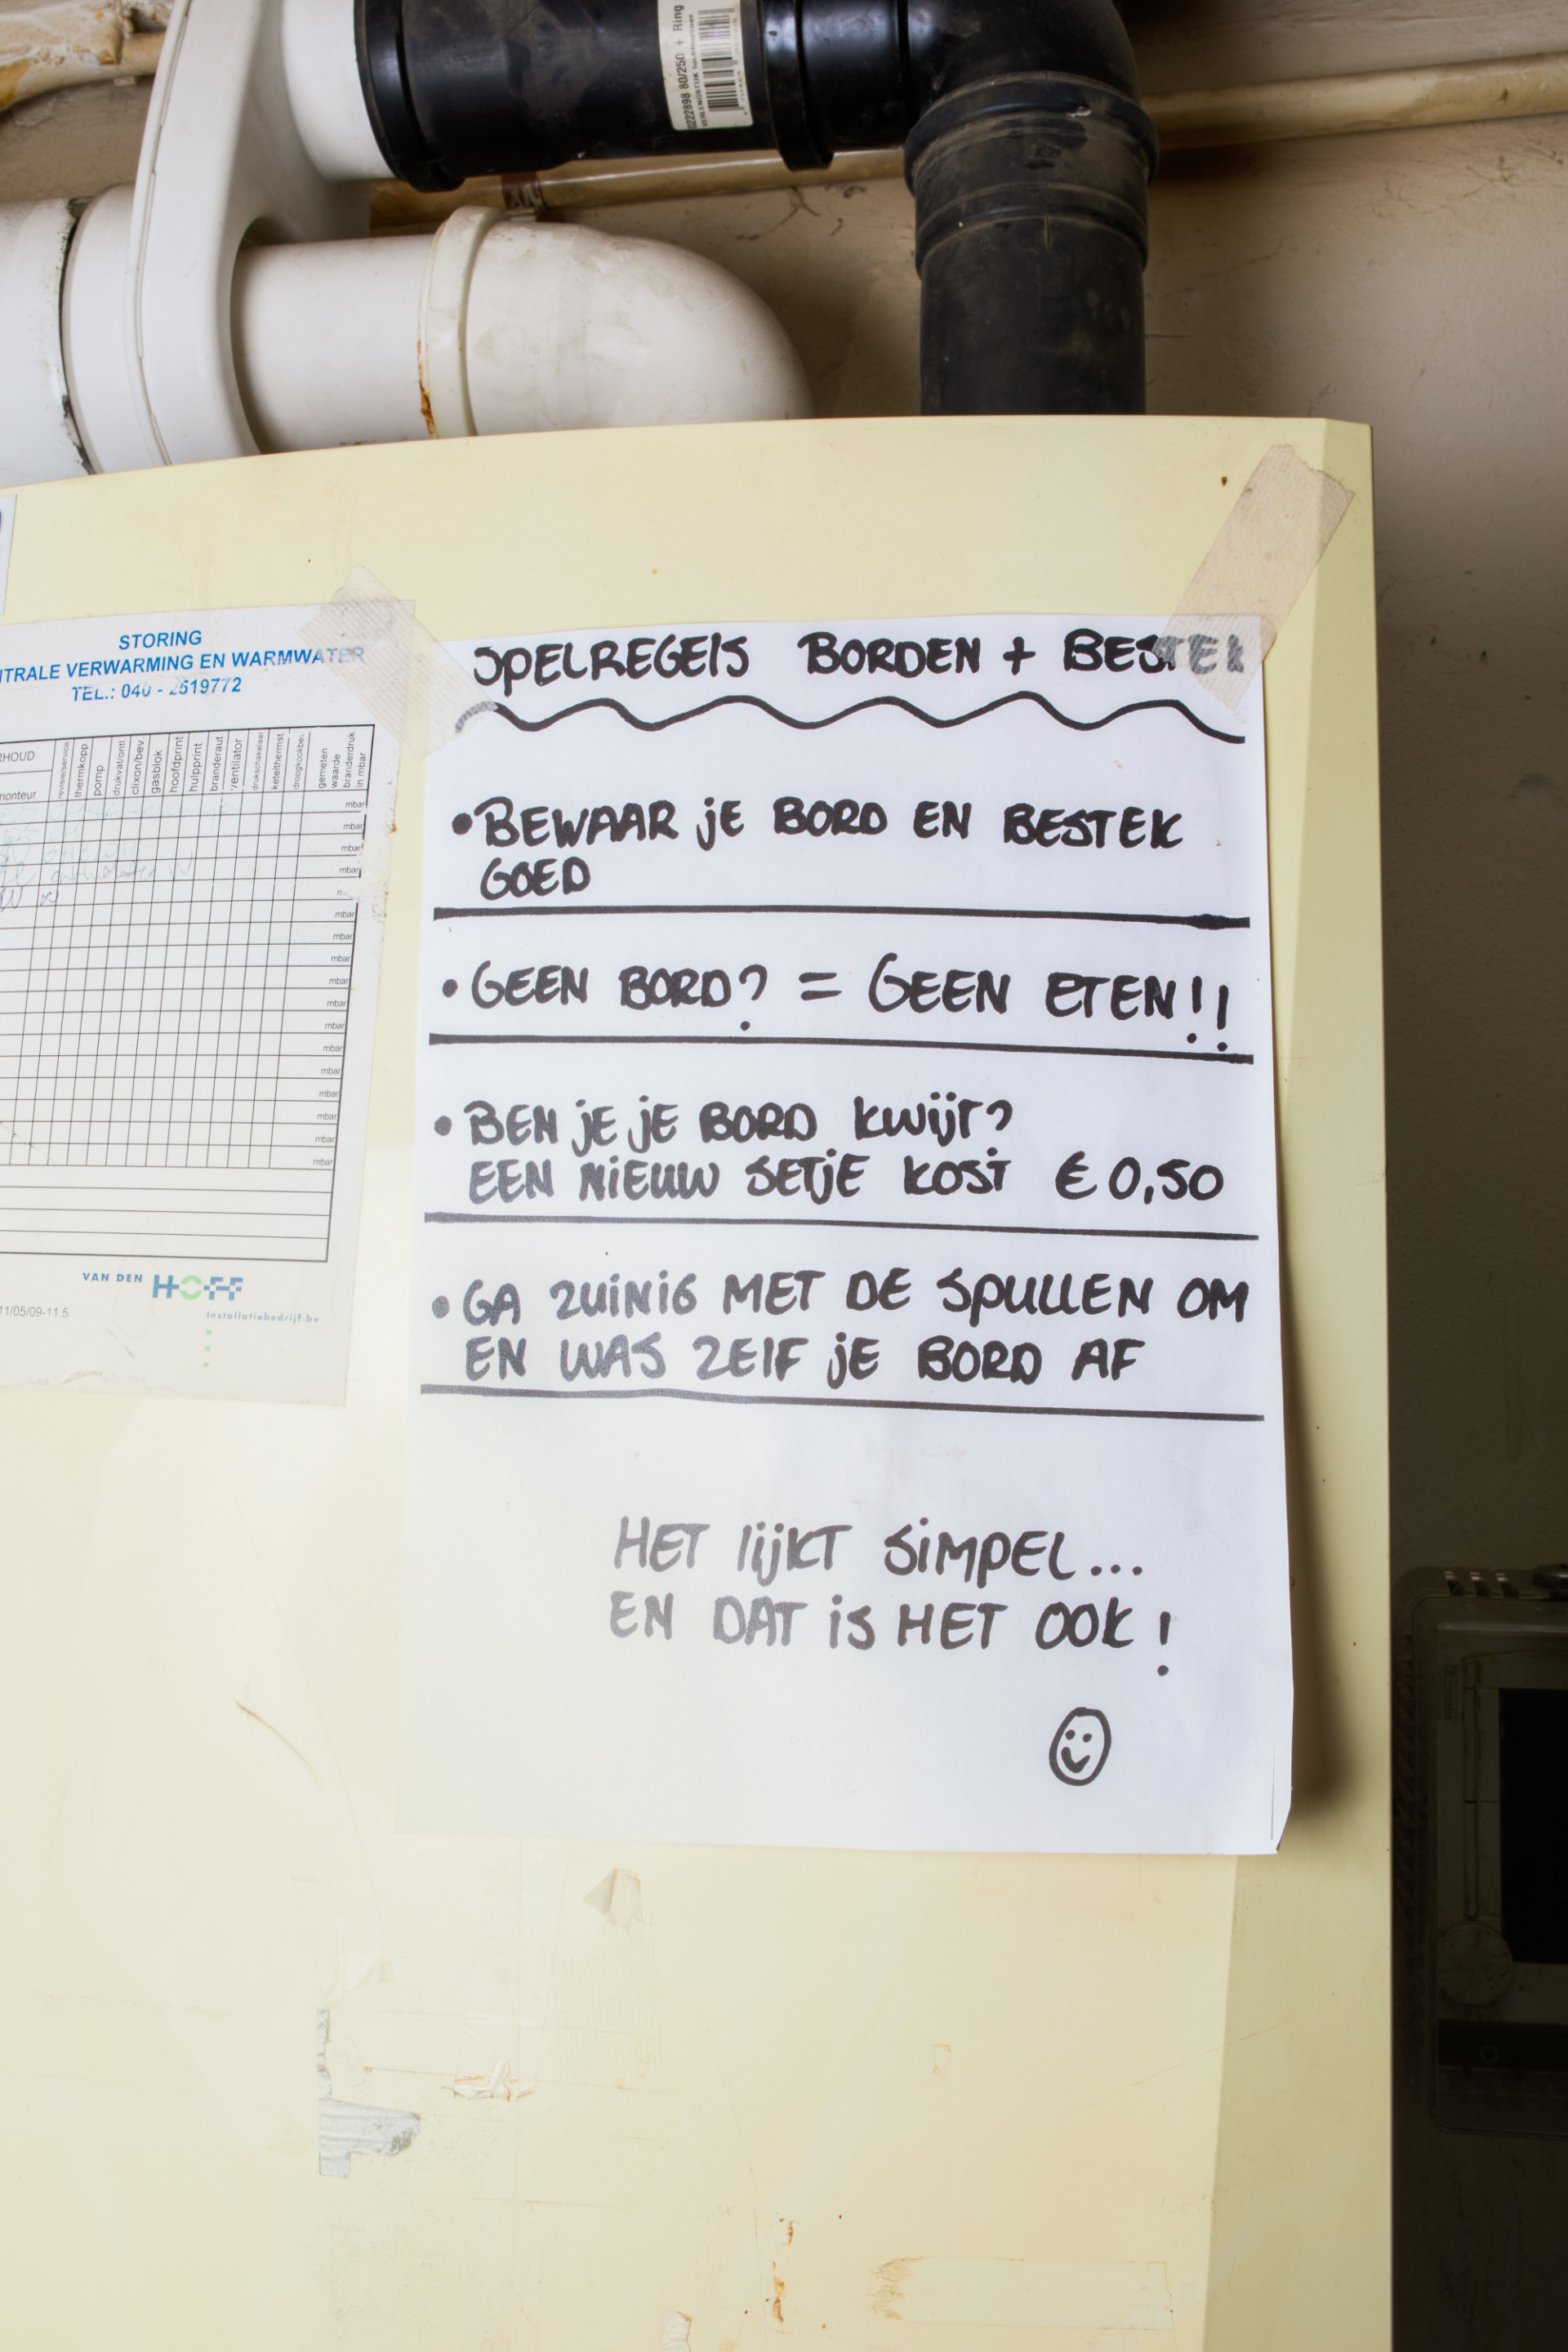 0222898 80/250 + Ring
STORING
NTRALE VERWARMING EN WARMWATER
TEL.: 040 - 2519772
RHOUD
monteur
revisie/service
thermkopp
pomp
drukvat/ontl
clixon/bev
gasblok
hoofdprint
hulpprint
branderaut
ventilator
drukschakelaar
ketelthermst
droogkookbev
gemeten
waarde
branderdruk
in mbar
mbar
mbar
mbar
mbar
mbar
mbar
mbar
mbar
mbar
mbar
mbar
mbar
mbar
mbar
mbar
mbar
VAN DEN HOFF
Installatiebedrijf bv
11/05/09-11.5
SPELREGELS BORDEN + BESTEK
• BEWAAR JE BORD EN BESTEK
GOED
• GEEN BORD? = GEEN ETEN!!
• BEN JE JE BORD KWIJT?
EEN NIEUW SETJE KOST € 0,50
• GA ZUINIG MET DE SPULLEN OM
EN WAS ZELF JE BORD AF
HET LIJKT SIMPEL...
EN DAT IS HET OOK!